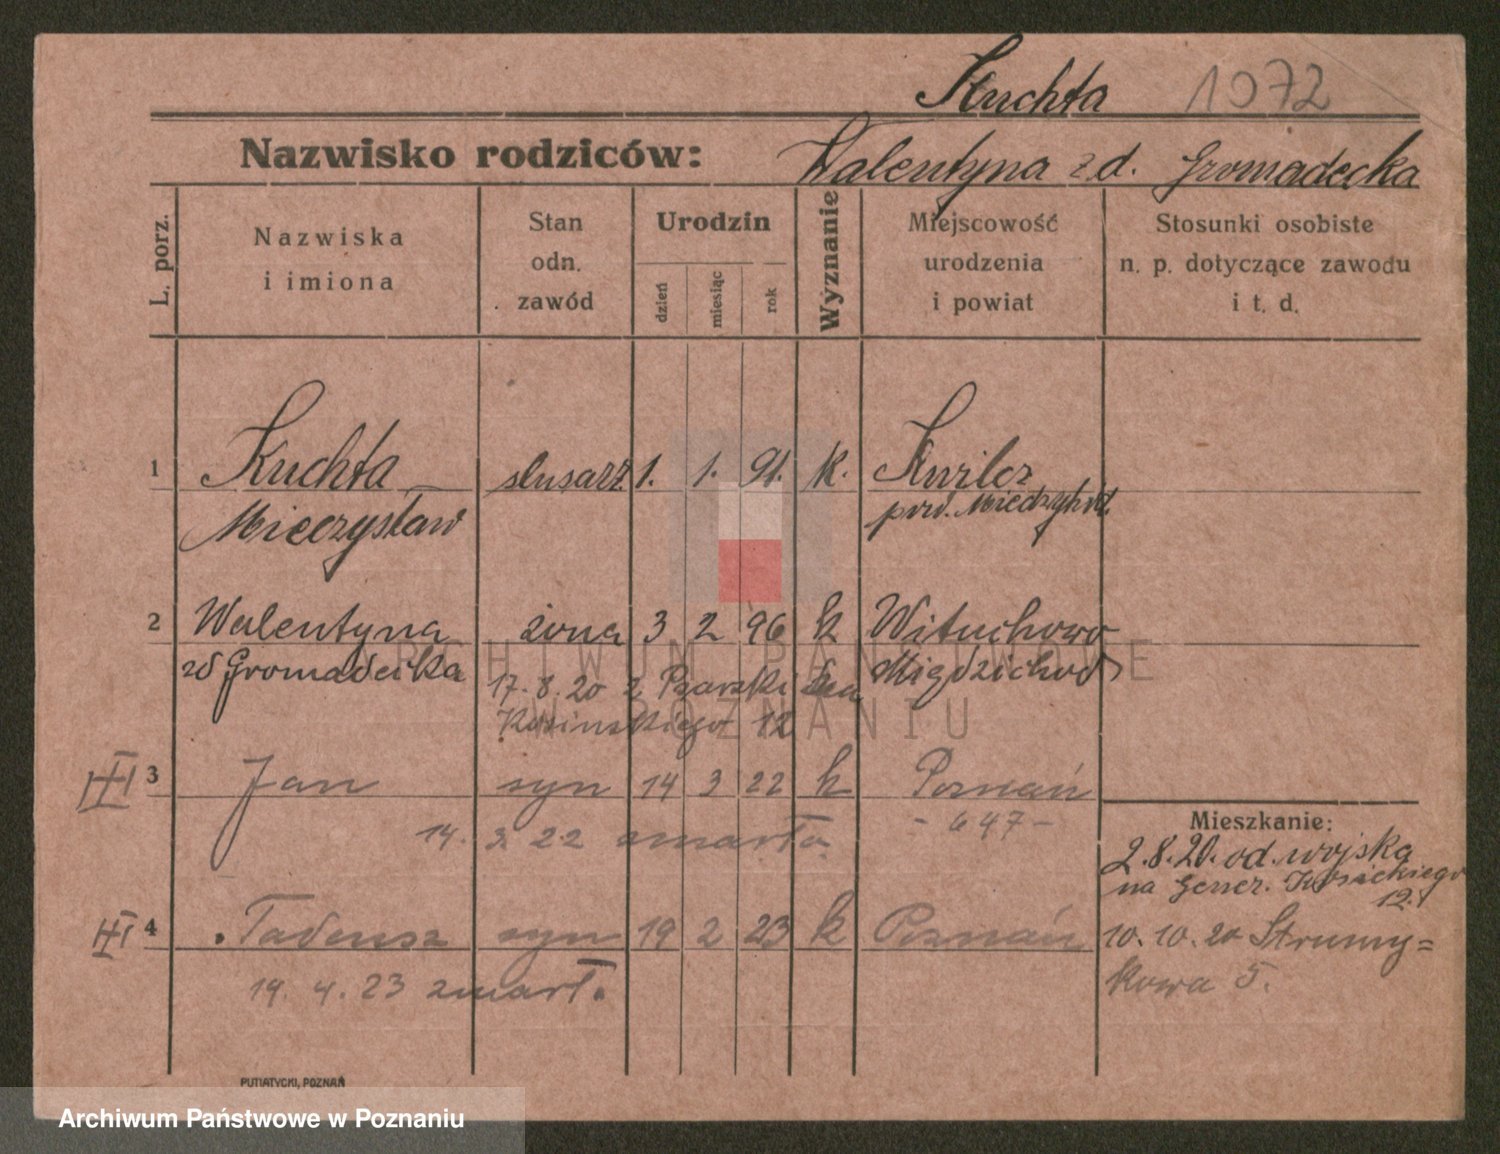 Kuchta 1072
Nazwisko rodziców: Walentyna z d. Gromadecka
L. porz.
Nazwiska
i imiona
Stan
odn.
zawód
Urodzin
dzień
miesiąc
rok
Wyznanie
Miejscowość
urodzenia
i powiat
Stosunki osobiste
n. p. dotyczące zawodu
i t. d.
1 Kuchta ślusarz 1. 1. 91. k. Kwilcz
Mieczysław pow. Międzychód.
2 Walentyna żona 3 2 96 k Wituchowo
zd Gromadecka Międzichod
17.8.20 z
Kosinskiego 12
III 3 Jan syn 14 3 22 k Poznań
14. 3 22 zmarło. - 647 -
Mieszkanie:
2.8.20. od. wojska
na Gener. Kosickiego
12.
III 4 Tadeusz syn 19 2 23 k Poznań
19. 4. 23 zmarł.
10. 10. 20 Strumy=
kowa 5.
PUTIATYCKI, POZNAŃ
ARCHIWUM PAŃSTWOWE
W POZNANIU
Archiwum Państwowe w Poznaniu